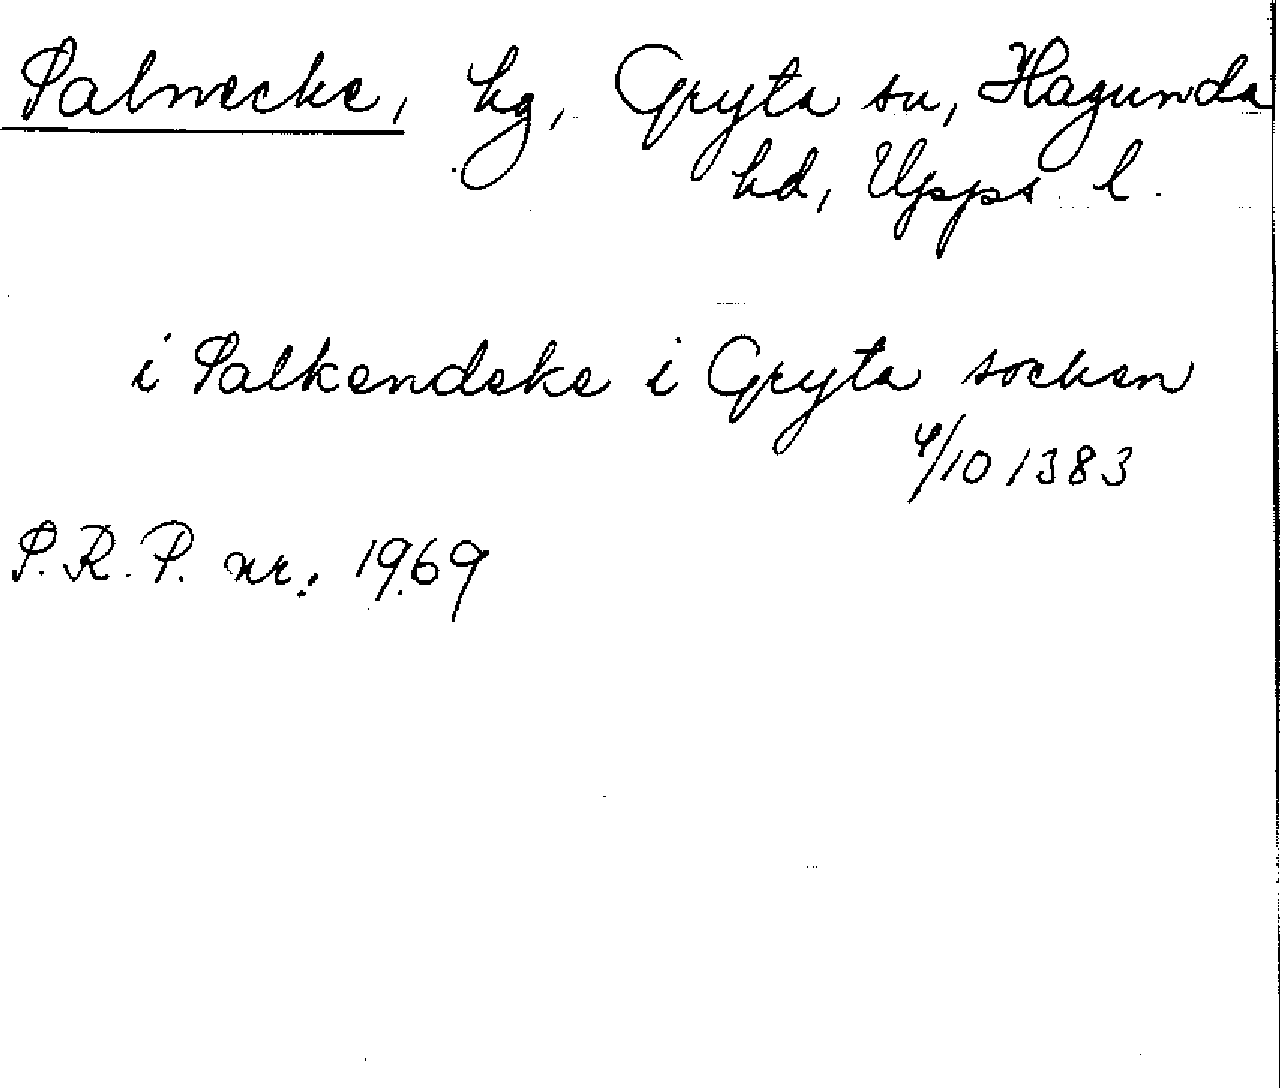 Salnecke, hg, Gryta sn, Hagunda
hd, Upps. l.
i Salkendeke i Gryta socken
4/10 1383
S.R.P. nr. 1969